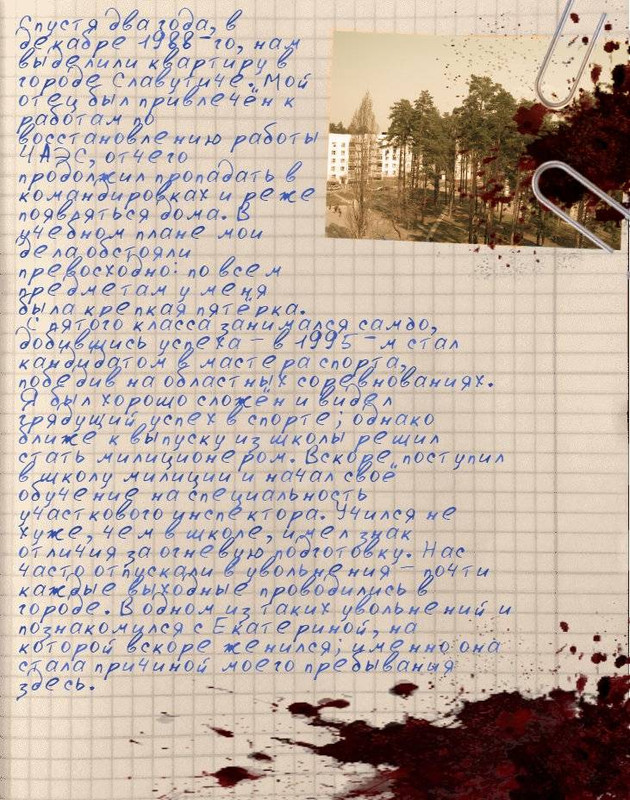 Спустя два года, в
декабре 1988-го, нам
выделили квартиру в
городе Славутиче. Мой
отец был привлечён к
работам по
восстановлению работы
ЧАЭС, отчего
продолжил пропадать в
командировках и реже
появряться дома. В
учебном плане мои
дела обстояли
превосходно: по всем
предметам у меня
была крепкая пятёрка.
С пятого класса занимался самбо,
добившись успеха – в 1995-м стал
кандидатом в мастера спорта,
победив на областных соревнованиях.
Я был хорошо сложён и видел
грядущий успех в спорте; однако
ближе к выпуску из школы решил
стать милиционером. Вскоре поступил
в школу милиции и начал своё
обучение на специальность
участкового инспектора. Учился не
хуже, чем в школе, имел знак
отличия за огневую подготовку. Нас
часто отпускали в увольнения – почти
каждые выходные проводились в
городе. В одном из таких увольнений и
познакомился с Екатериной, на
которой вскоре женился; именно она
стала причиной моего пребывания
здесь.